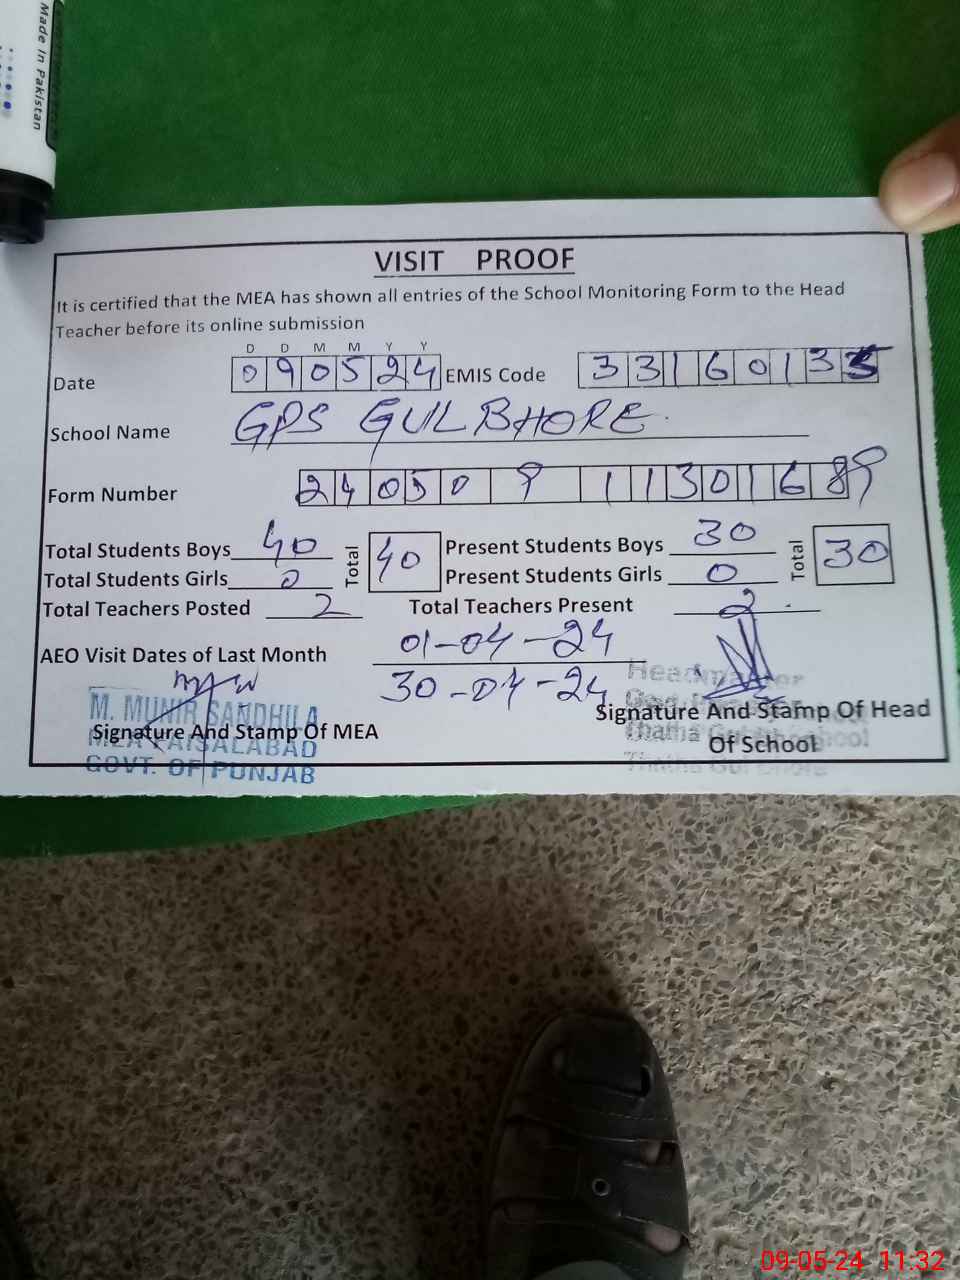 Made In Pakistan
VISIT PROOF
It is certified that the MEA has shown all entries of the School Monitoring Form to the Head
Teacher before its online submission
D D M M Y Y
Date 0 9 0 5 2 4 EMIS Code 3 3 1 6 0 1 3 3
School Name GPS GUL BHORE.
Form Number 2 4 0 5 0 9 1 1 3 0 1 6 8 9
Total Students Boys 40 Total 40 Present Students Boys 30 Total 30
Total Students Girls 0 Present Students Girls 0
Total Teachers Posted 2 Total Teachers Present 2
AEO Visit Dates of Last Month 01-04-24
30-04-24
Headmaster
M. MUNIR SANDHILA
Signature And Stamp Of MEA Signature And Stamp Of Head
Of School
MEA FAISALABAD
GOVT. OF PUNJAB
Thatha Gul Bhore
09-05-24 11:32